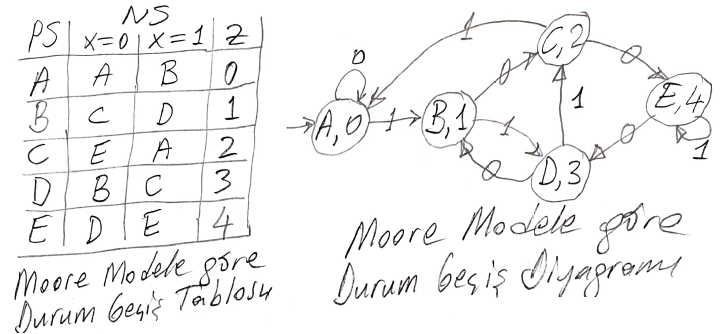 NS
PS x=0 x=1 Z
A A B 0
B C D 1
C E A 2
D B C 3
E D E 4
Moore Modele göre
Durum Geçiş Tablosu
0
1
A,0
1
B,1
0
C,2
0
E,4
1
1
1
0
0
D,3
Moore Modele göre
Durum Geçiş Diyagramı